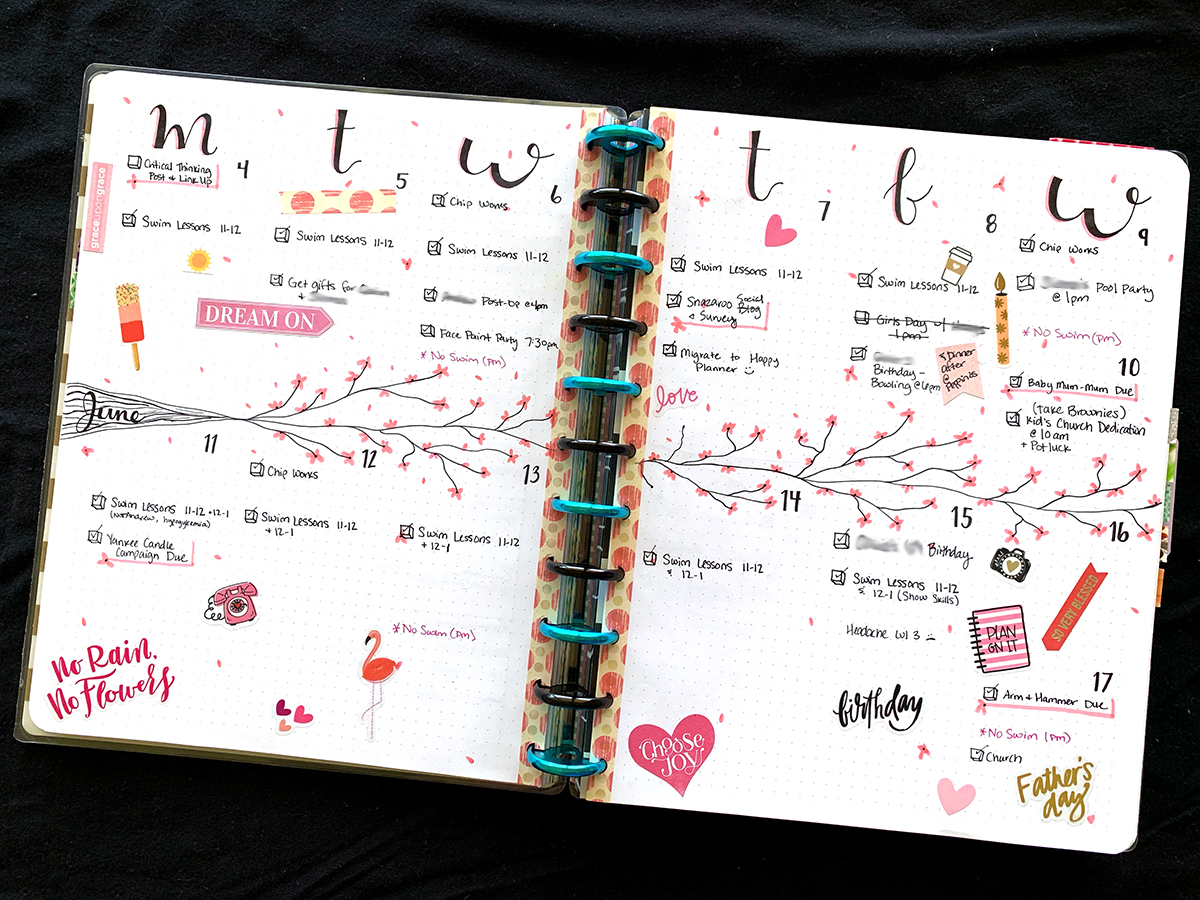 m
t
w
t
f
w
4
Critical Thinking
Post & Link Up
Swim Lessons 11-12
graceupongrace
5
Swim Lessons 11-12
Get gifts for
+
DREAM ON
6
Chip Works
Swim Lessons 11-12
Post-Op @
Face Paint Party 7:30pm
*No Swim (pm)
7
Swim Lessons 11-12
Snazaroo Social
Blog
& Survey
Migrate to Happy
Planner
love
8
Swim Lessons 11-12
Girls Day w/
1pm
Birthday -
Bowling @ 6pm
& Dinner
after
@
9
Chip Works
Pool Party
@ 1pm
*No Swim (pm)
10
Baby Mum-Mum Due
(Take Brownies)
Kid's Church Dedication
@ 10am
+ Potluck
June
11
Swim Lessons 11-12 + 12-1
(Not Andrew, hypoglycemia)
Yankee Candle
Campaign Due
No Rain,
No Flowers
12
Chip Works
Swim Lessons 11-12
+ 12-1
13
Swim Lessons 11-12
+ 12-1
*No Swim (pm)
14
Swim Lessons 11-12
& 12-1
Choose
JOY!
15
Birthday
Swim Lessons 11-12
& 12-1 (Show Skills)
Headache lvl 3
birthday
16
PLAN
ON IT
SO VERY BLESSED
17
Arm & Hammer Due
*No Swim (pm)
Church
Father's
day